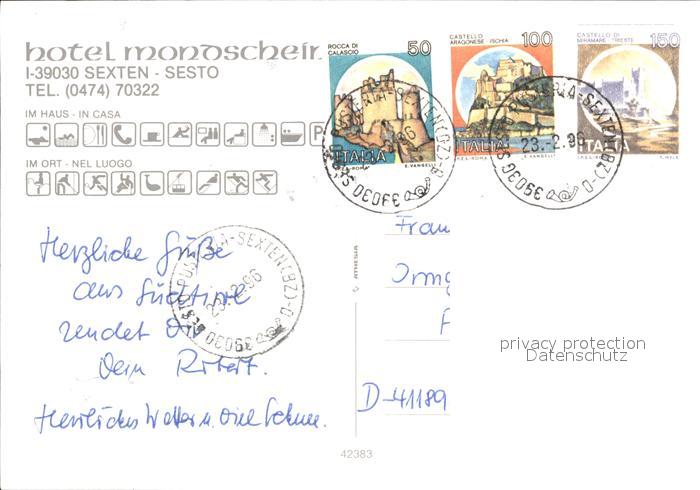 hotel mondschein
I-39030 SEXTEN - SESTO
TEL. (0474) 70322
IM HAUS - IN CASA
P
IM ORT - NEL LUOGO
ROCCA DI CALASCIO
50
ITALIA
E. VANGELLI
CASTELLO ARAGONESE - ISCHIA
100
ITALIA
I.P.Z.S. - ROMA
E. VANGELLI
CASTELLO DI MIRAMARE - TRIESTE
150
ITALIA
39030 SESTO PUSTERIA-SEXTEN (BZ)-D
23-2.96
Herzliche Grüße
aus Südtirol
sendet Dir
Dein Robert.
Herrliches Wetter u. viel Schnee.
Frau
Irmg
D-41189
privacy protection
Datenschutz
42383